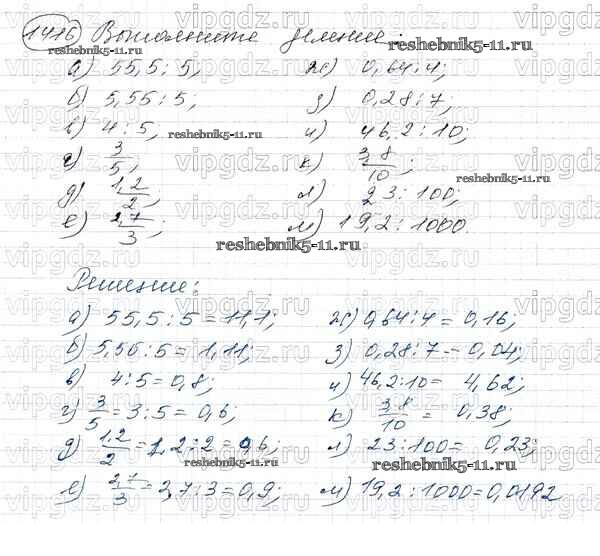 1416 Выполните деление:
а) 55,5 : 5;
ж) 0,64 : 4;
б) 5,55 : 5;
з) 0,28 : 7;
в) 4 : 5;
и) 46,2 : 10;
г) 3/5;
к) 3,8/10;
д) 1,2/2;
л) 23 : 100;
е) 2,7/3;
м) 19,2 : 1000.
Решение:
а) 55,5 : 5 = 11,1;
ж) 0,64 : 4 = 0,16;
б) 5,55 : 5 = 1,11;
з) 0,28 : 7 = 0,04;
в) 4 : 5 = 0,8;
и) 46,2 : 10 = 4,62;
г) 3/5 = 3 : 5 = 0,6;
к) 3,8/10 = 0,38;
д) 1,2/2 = 1,2 : 2 = 0,6;
л) 23 : 100 = 0,23;
е) 2,7/3 = 2,7 : 3 = 0,9;
м) 19,2 : 1000 = 0,0192
reshebnik5-11.ru
reshebnik5-11.ru
reshebnik5-11.ru
reshebnik5-11.ru
reshebnik5-11.ru
reshebnik5-11.ru
vipgdz.ru